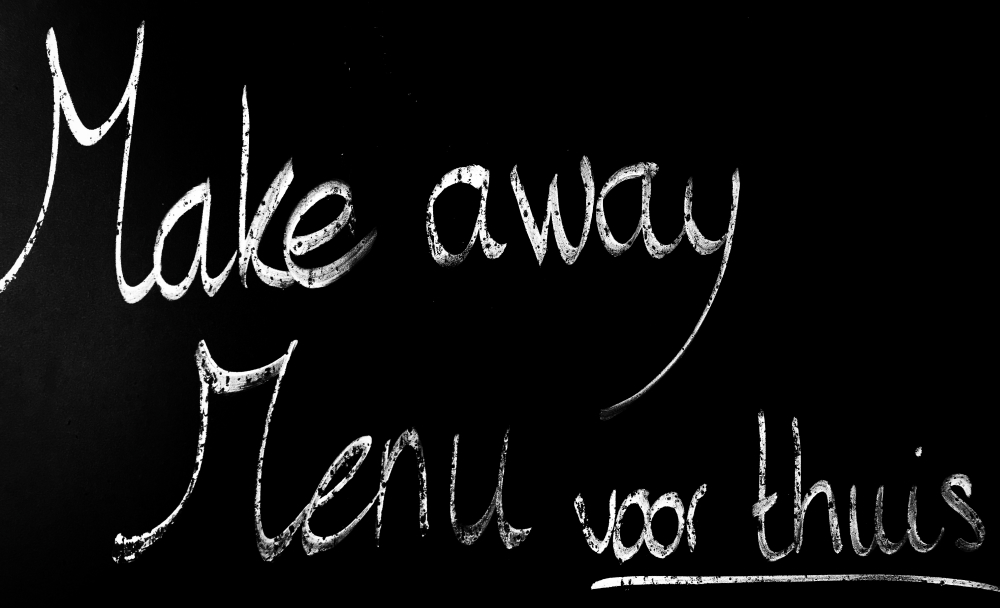 Make away
Menu voor thuis